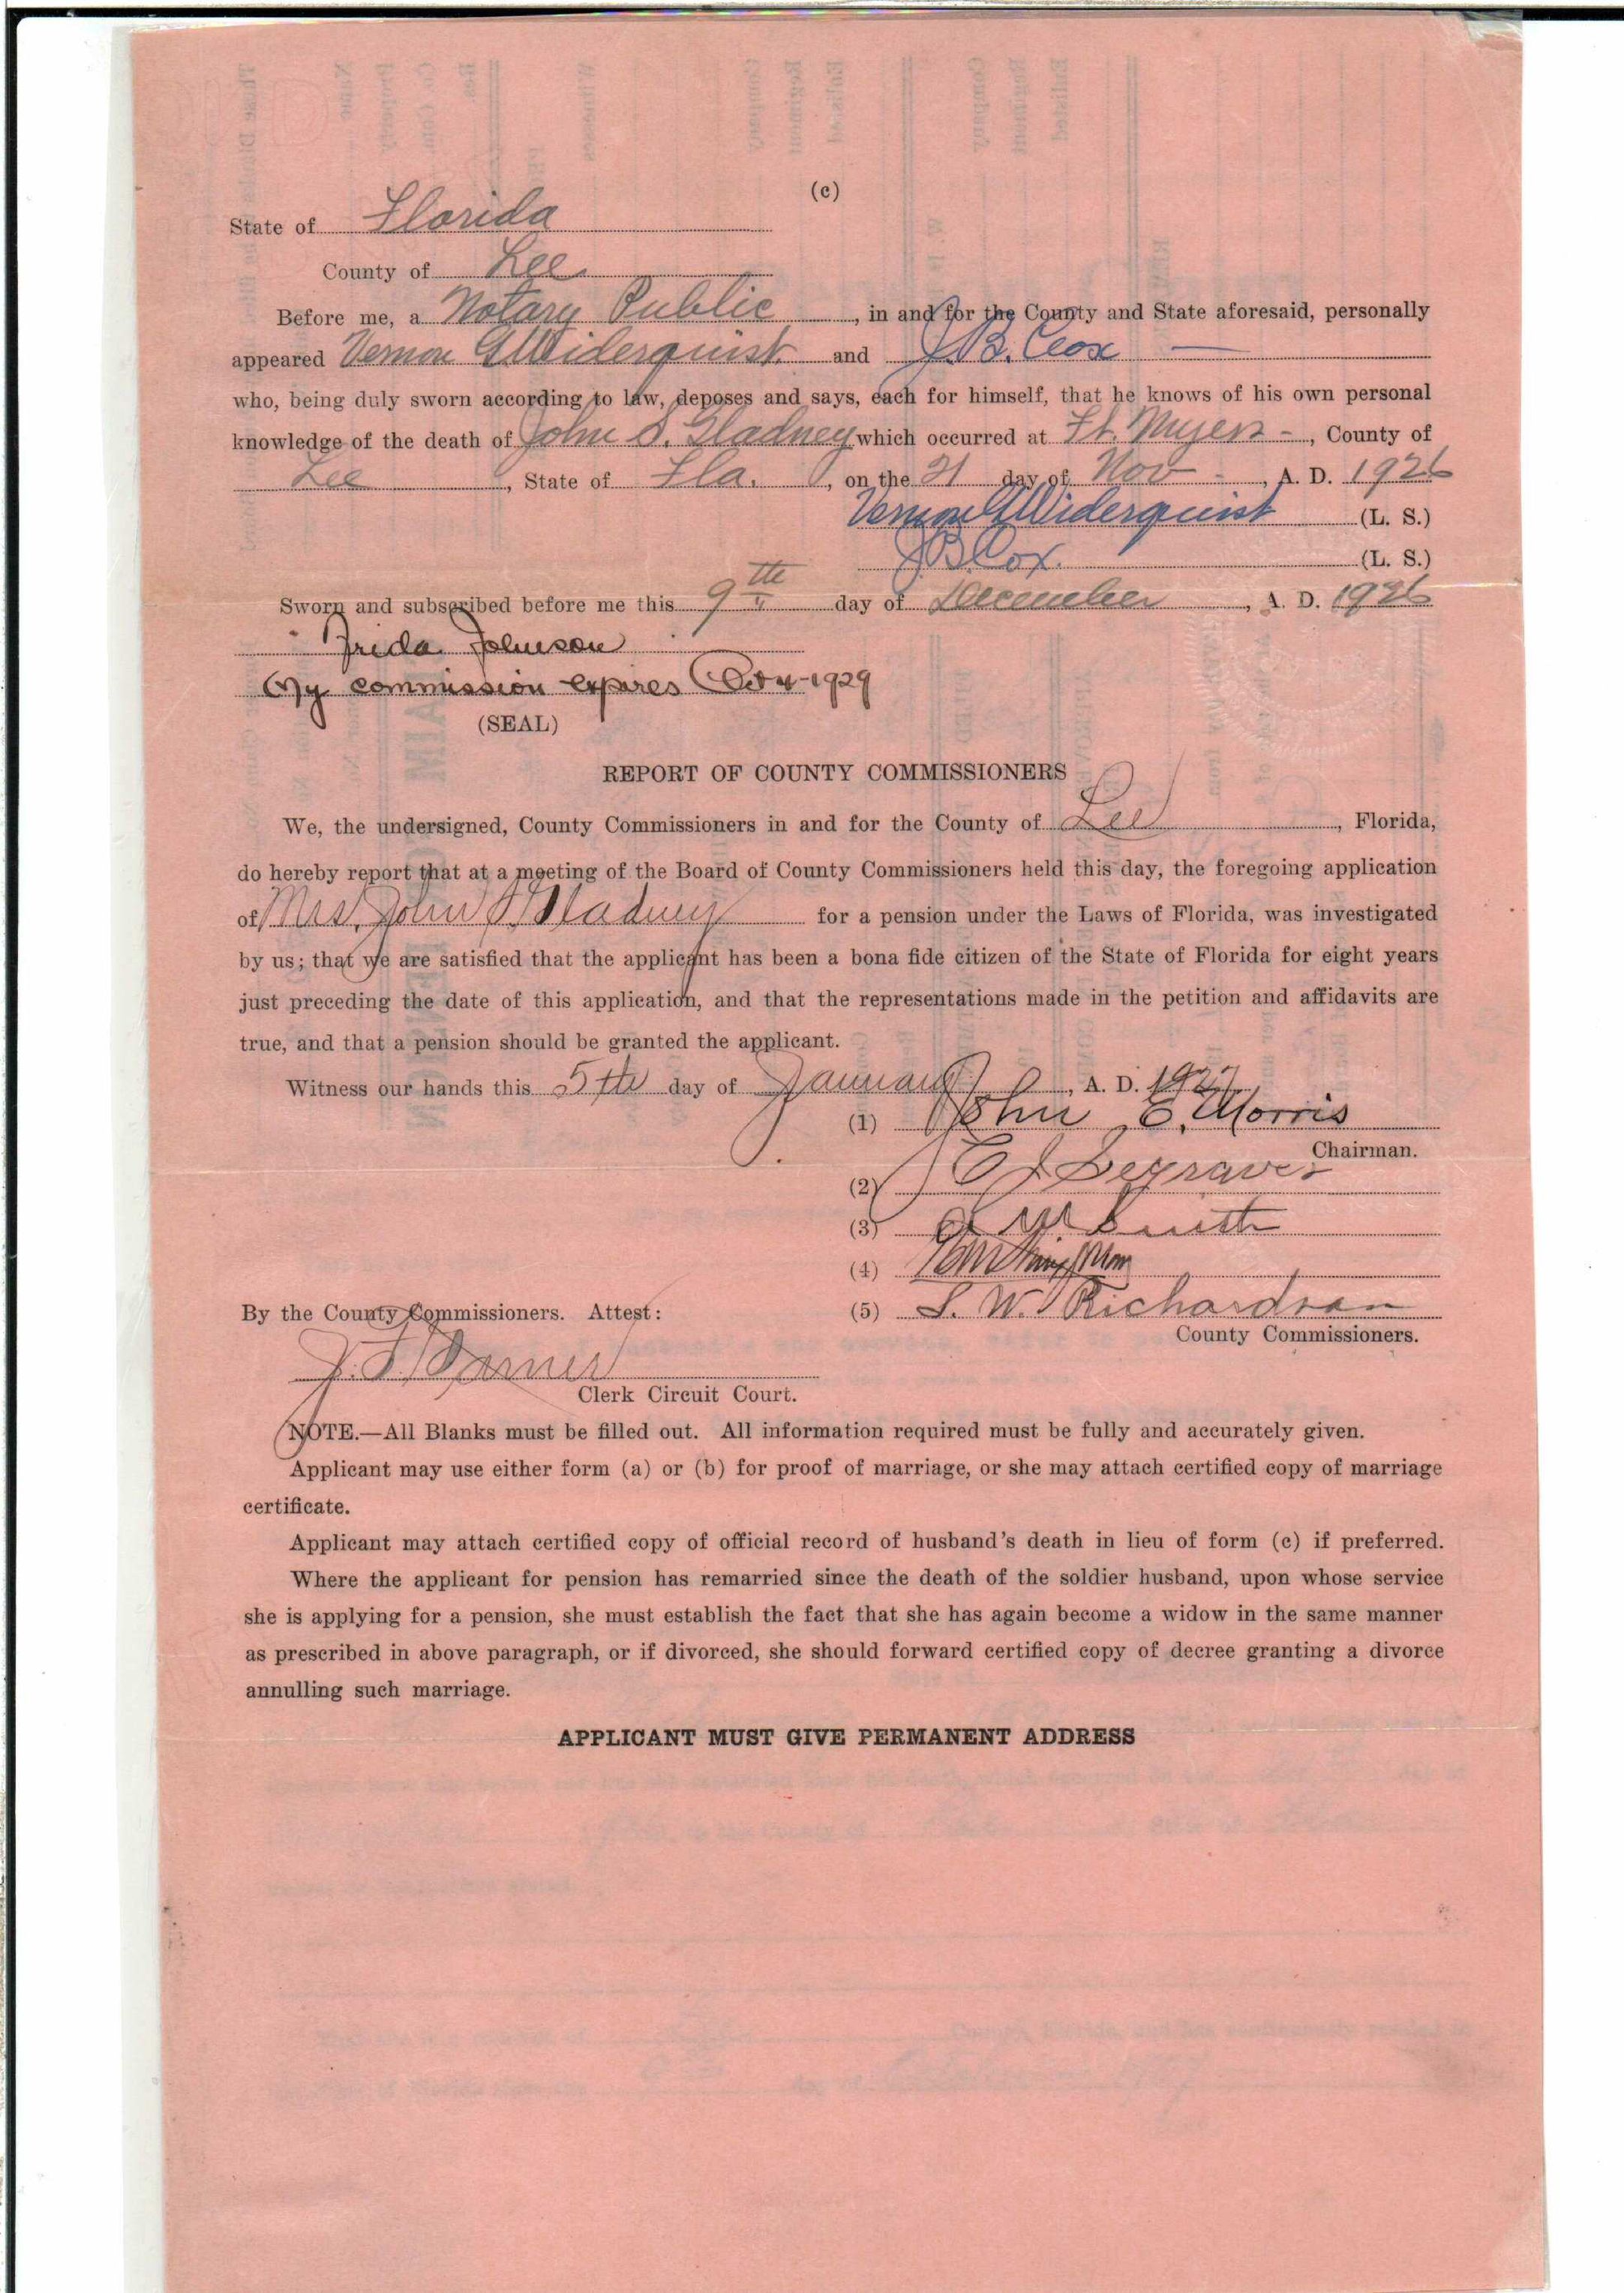 (c)
State of Florida
County of Lee
Before me, a Notary Public, in and for the County and State aforesaid, personally
appeared Vernon G Widerquist and J. B. Cox
who, being duly sworn according to law, deposes and says, each for himself, that he knows of his own personal
knowledge of the death of John S. Gladney which occurred at Ft. Myers -, County of
Lee, State of Fla., on the 21 day of Nov -, A. D. 1926
Vernon G Widerquist (L. S.)
J B Cox. (L. S.)
Sworn and subscribed before me this 9th day of December, A. D. 1926
Frida Johnson
My commission expires Oct 4-1929
(SEAL)
REPORT OF COUNTY COMMISSIONERS
We, the undersigned, County Commissioners in and for the County of Lee, Florida,
do hereby report that at a meeting of the Board of County Commissioners held this day, the foregoing application
of Mrs. John S Gladney for a pension under the Laws of Florida, was investigated
by us; that we are satisfied that the applicant has been a bona fide citizen of the State of Florida for eight years
just preceding the date of this application, and that the representations made in the petition and affidavits are
true, and that a pension should be granted the applicant.
Witness our hands this 5th day of January, A. D. 1927
(1) John E. Morris
Chairman.
(2) Segraves
(3) Smith
(4)
By the County Commissioners. Attest: (5) S. W. Richardson
County Commissioners.
Clerk Circuit Court.
NOTE.—All Blanks must be filled out. All information required must be fully and accurately given.
Applicant may use either form (a) or (b) for proof of marriage, or she may attach certified copy of marriage
certificate.
Applicant may attach certified copy of official record of husband's death in lieu of form (c) if preferred.
Where the applicant for pension has remarried since the death of the soldier husband, upon whose service
she is applying for a pension, she must establish the fact that she has again become a widow in the same manner
as prescribed in above paragraph, or if divorced, she should forward certified copy of decree granting a divorce
annulling such marriage.
APPLICANT MUST GIVE PERMANENT ADDRESS